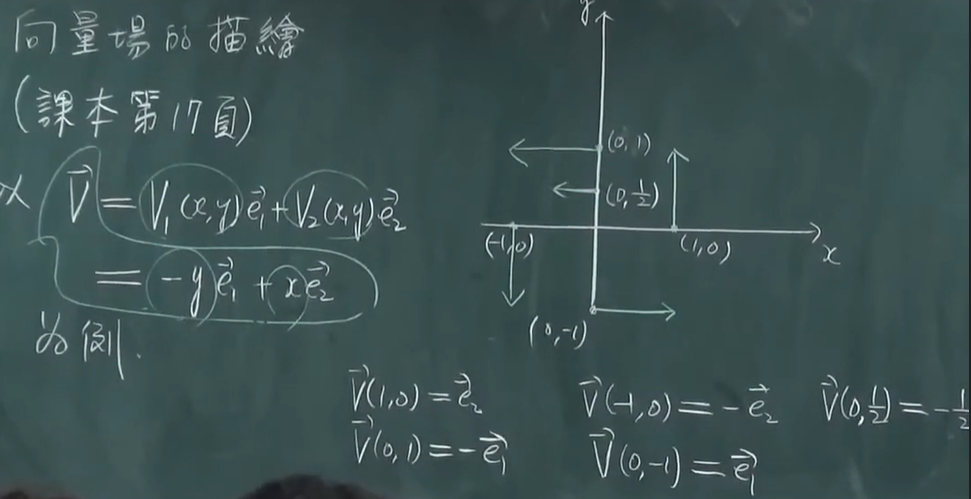 向量場的描繪
(課本第17頁)
以 V⃗ = V₁(x,y)e⃗₁ + V₂(x,y)e⃗₂
= -y e⃗₁ + x e⃗₂
為例.
y
(0,1)
(0,½)
(-1,0)
(1,0)
x
(0,-1)
V⃗(1,0) = e⃗₂
V⃗(0,1) = -e⃗₁
V⃗(-1,0) = -e⃗₂
V⃗(0,-1) = e⃗₁
V⃗(0,½) = -½